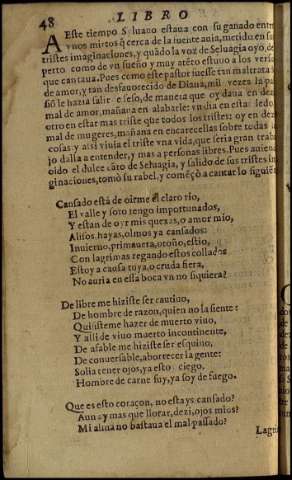 48 LIBRO
A Este tiempo Siluano estaua con su ganado entre
vnos mirtos q̃ cerca de la fuente auia, metido en sus
tristes imaginaciones, y quãdo la voz de Seluagia oyó, des
perto como de vn sueño y muy atẽto estuuo a los versos
que cantaua. Pues como este pastor fuesse tan maltratado
de amor, y tan desfauorecido de Diana, mil vezes la pas
siõ le hazia salir de seso, de manera que oy daua en dezir
mal de amor, mañana en alabarle: vn dia en estar ledo, y
otro en estar mas triste que todos los tristes: oy en dezir
mal de mugeres, mañana en encarecellas sobre todas las
cosas: y assi viuia el triste vna vida, que seria gran traba
jo dalla a entender, y mas a personas libres. Pues auiendo
oido el dulce cãto de Seluagia, y salido de sus tristes ima
ginaciones, tomò su rabel, y començò a cantar lo siguiẽte
Cansado está de oirme el claro rio,
El valle y soto tengo importunados,
Y estan de oyr mis quexas, o amor mio,
Alisos, hayas, olmos ya cansados:
Inuierno, primauera, otoño, estio,
Con lagrimas regando estos collados
Estoy a causa tuya, o cruda fiera,
No auria en essa boca vn no siquiera?
De libre me hiziste ser cautiuo,
De hombre de razon, quien no la siente:
Quisisteme hazer de muerto viuo,
Y alli de viuo muerto incontinente,
De afable me hiziste ser esquiuo,
De conuersable, aborrecer la gente:
Solia tener ojos, ya estoy ciego,
Hombre de carne fuy, ya soy de fuego.
Que es esto coraçon, no estays cansado?
Aun ay mas que llorar, dezi, ojos mios?
Mi alma no bastaua el mal passado?
Lagri